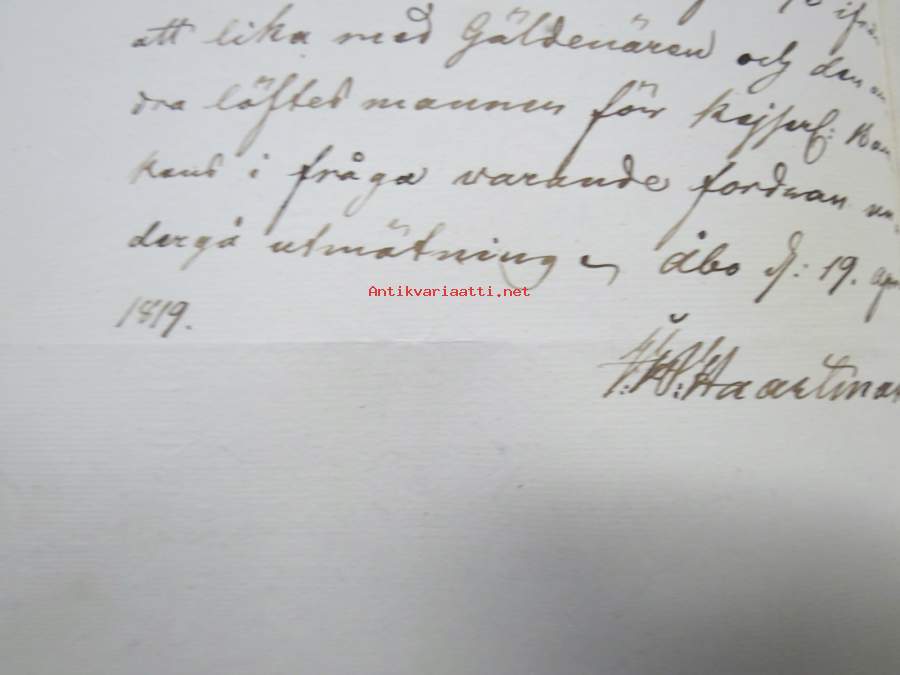 att lika med Gäldenären och den an
dra löftesmannen för Kejserl: Ban
kens i fråga varande fordran un
dergå utmätning Åbo d: 19. Apr
Antikvariaatti.net
1819.
Haartman